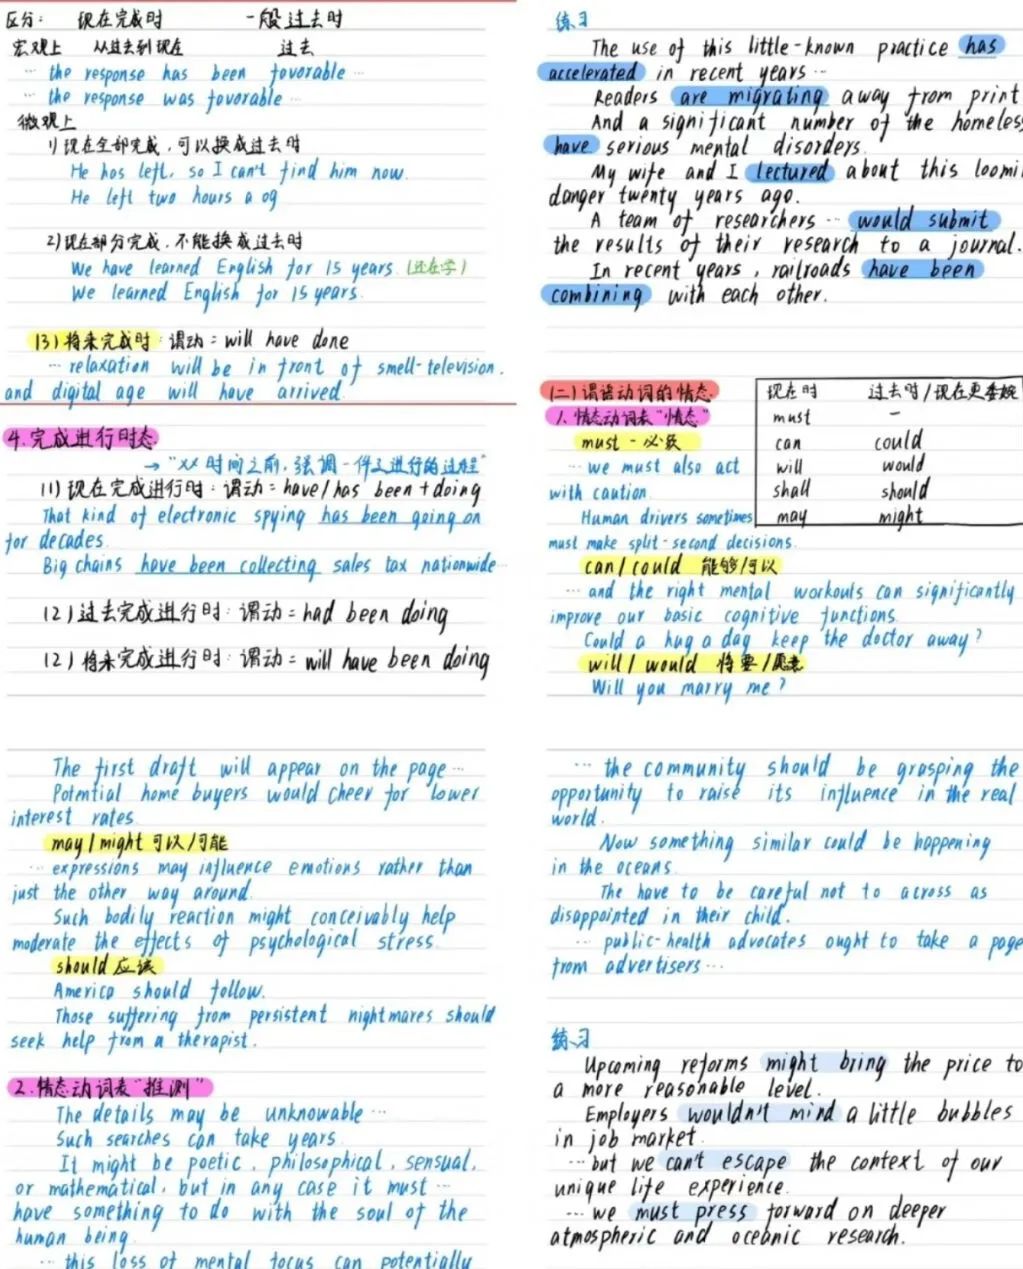 区分： 现在完成时 一般过去时
宏观上 从过去到现在 过去
… the response has been favorable …
… the response was favorable …
微观上
1) 现在全部完成，可以换成过去时
He has left, so I can't find him now.
He left two hours a og
2) 现在部分完成，不能换成过去时
We have learned English for 15 years. (还在学)
We learned English for 15 years.
(3) 将来完成时：谓动 = will have done
… relaxation will be in front of smell-television,
and digital age will have arrived.
4. 完成进行时态
→ "XX 时间之前，强调一件事进行的过程"
(1) 现在完成进行时：谓动 = have/has been + doing
That kind of electronic spying has been going on
for decades.
Big chains have been collecting sales tax nationwide …
(2) 过去完成进行时：谓动 = had been doing
(2) 将来完成进行时：谓动 = will have been doing
练习
The use of this little-known practice has
accelerated in recent years …
Readers are migrating away from print
And a significant number of the homeless
have serious mental disorders.
My wife and I lectured about this loomi
danger twenty years ago.
A team of researchers … would submit
the results of their research to a journal.
In recent years, railroads have been
combining with each other.
(二) 谓语动词的情态
1. 情态动词表"情态"
must - 必须
… we must also act
with caution.
Human drivers sometimes
must make split-second decisions.
现在时 过去时/现在更委婉
must —
can could
will would
shall should
may might
can/could 能够/可以
… and the right mental workouts can significantly
improve our basic cognitive functions.
Could a hug a day keep the doctor away?
will/would 将要/愿意
Will you marry me?
The first draft will appear on the page …
Potential home buyers would cheer for lower
interest rates.
may/might 可以/可能
… expressions may influence emotions rather than
just the other way around.
Such bodily reaction might conceivably help
moderate the effects of psychological stress.
should 应该
America should follow.
Those suffering from persistent nightmares should
seek help from a therapist.
2. 情态动词表"推测"
The details may be unknowable …
Such searches can take years.
It might be poetic, philosophical, sensual,
or mathematical, but in any case it must …
have something to do with the soul of the
human being.
… this loss of mental focus can potentially
… the community should be grasping the
opportunity to raise its influence in the real
world.
Now something similar could be happening
in the oceans.
The have to be careful not to across as
disappointed in their child.
… public-health advocates ought to take a page
from advertisers …
练习
Upcoming reforms might bring the price to
a more reasonable level.
Employers wouldn't mind a little bubbles
in job market.
… but we can't escape the context of our
unique life experience.
… we must press forward on deeper
atmospheric and oceanic research.